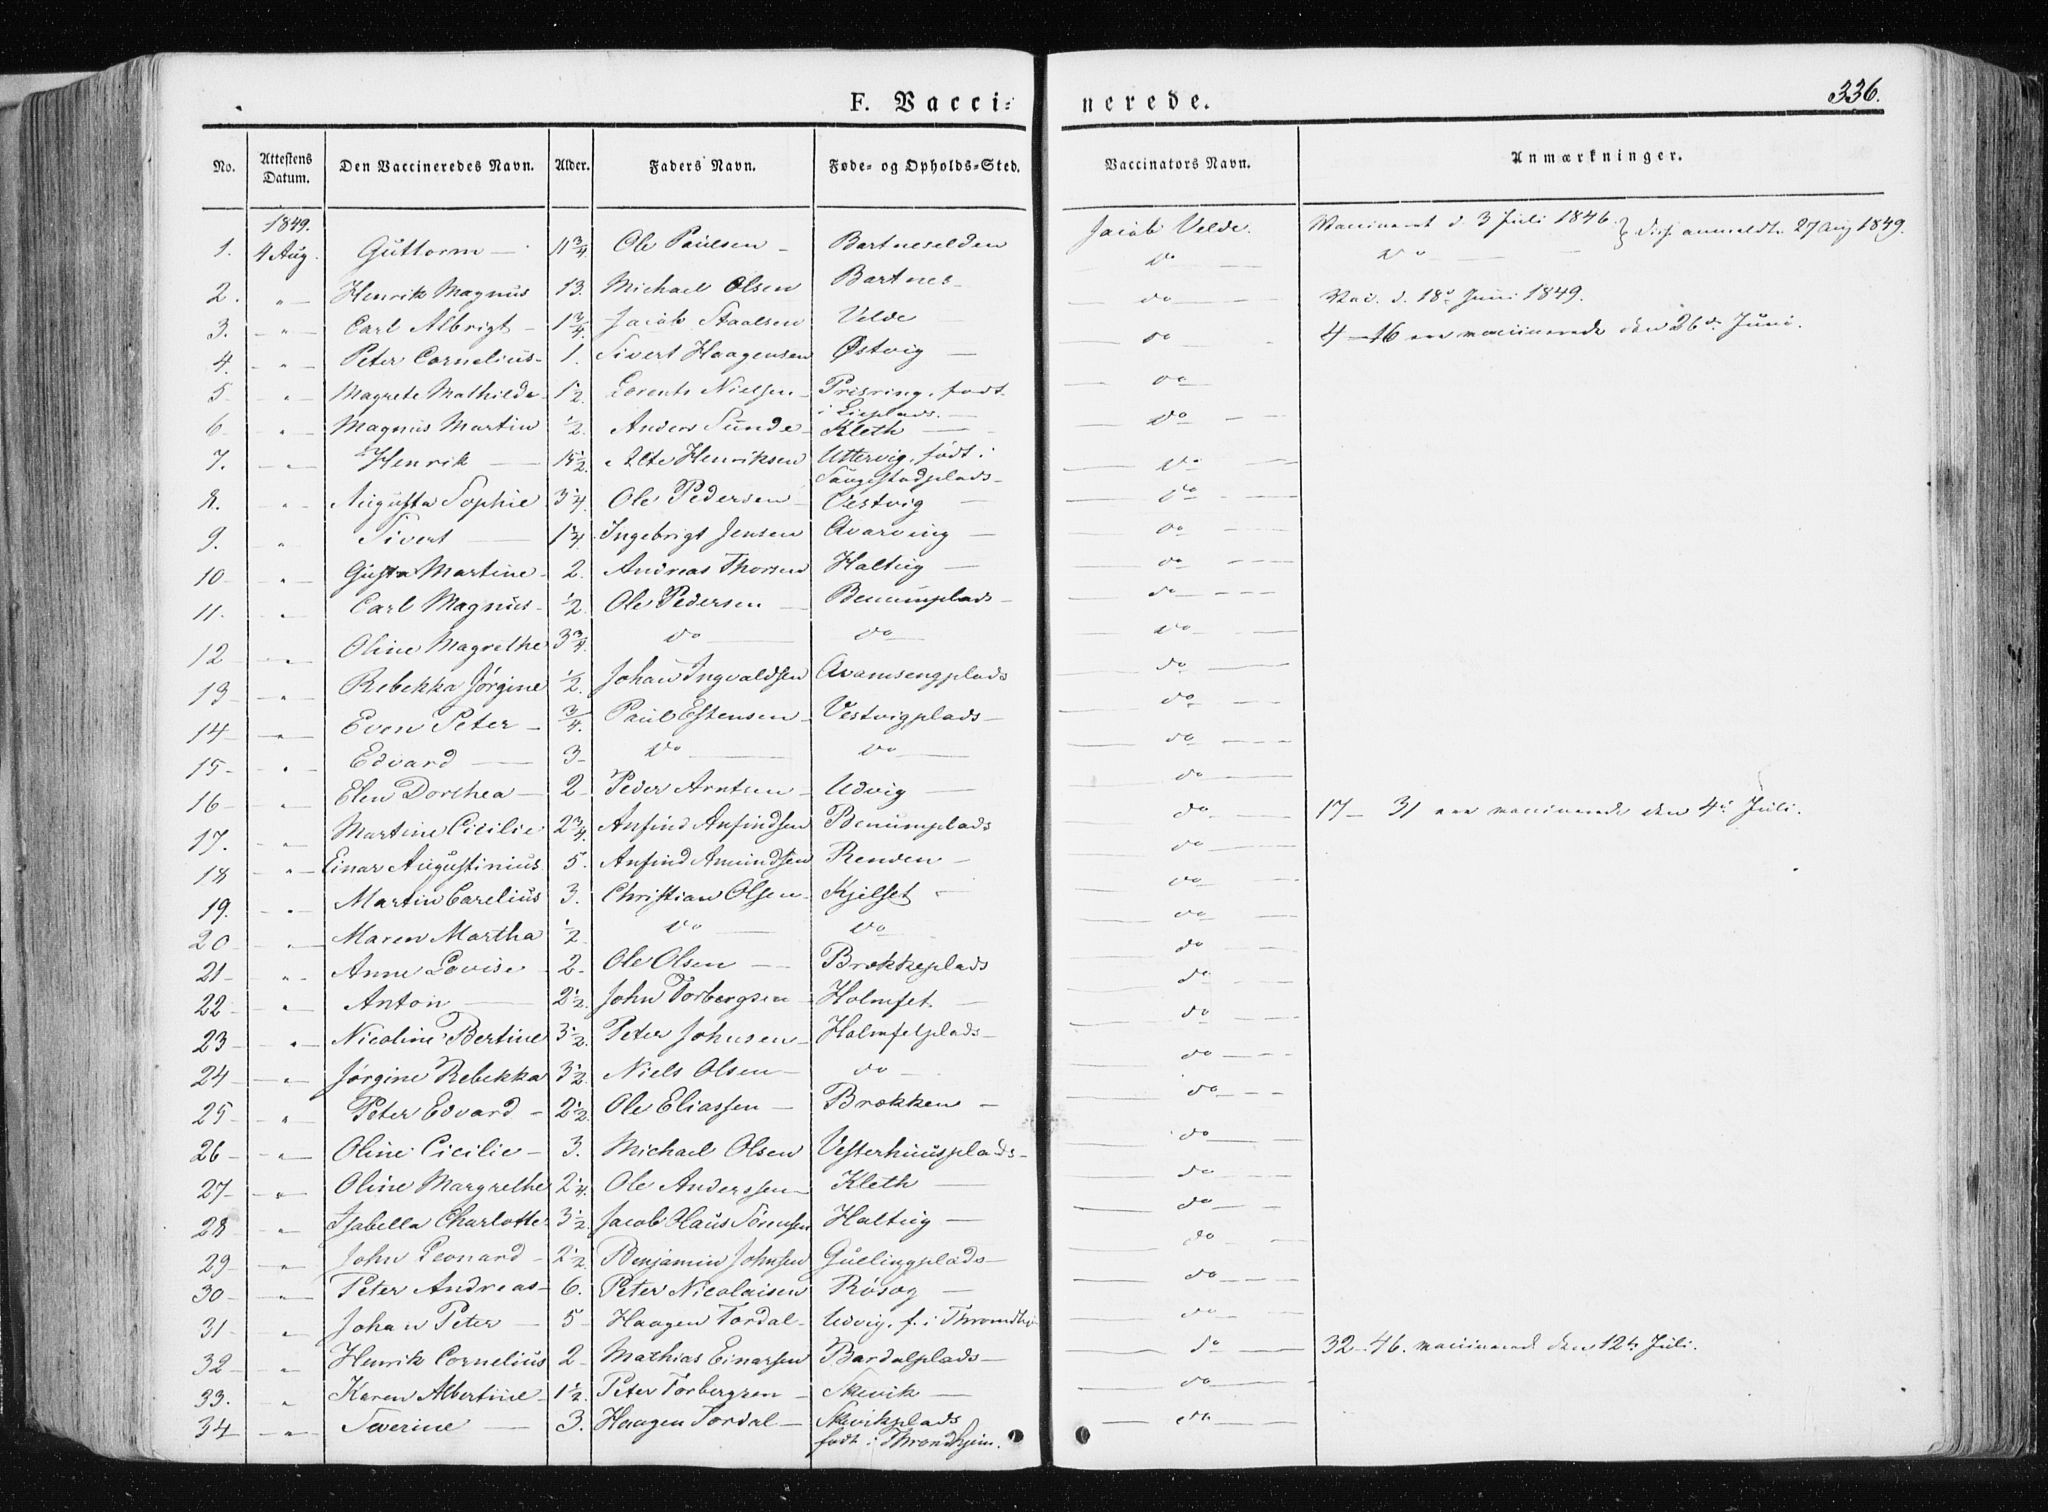 F. Vacci- nerede. 336.
No. Attestens Datum. Den Vaccineredes Navn. Alder. Faders Navn. Føde- og Opholds-Sted. Vaccinators Navn. Anmærkninger.
1849.
1. 4 Aug. Guttorm — 11 3/4 Ole Paulsen — Bartneselden Jacob Velde. Vaccineret d. 3 Juli 1846. anmeldt 27 Aug 1849.
2. " Henrik Magnus 13. Michael Olsen Bartnes — do — do —
3. " Carl Albrigt — 1 3/4 Jacob Staalsen Velde — do — Vac. d. 18de Juni 1849.
4. " Peter Cornelius — 1. Sivert Haagensen Østvig — do — 4 — 16 ere vaccinerede den 26de Juni.
5 — " Magrete Mathilde — 1/2 Lorents Nielsen — Prisring, født i Lieplads. — do —
6 — " Magnus Martin 1/2 Anders Sunde — Kleth — do —
7. " Henrik — 15 1/2 Atle Henriksen Uttervig, født i Saugestadplads — do —
8. " Augusta Sophie 3 1/4 Ole Pedersen — Vestvig — do —
9. " Sivert — 1 1/4 Ingebrigt Jensen Avarving — do —
10 — " Gusta Martine — 2. Andreas Thorsen Haltvig — do —
11. " Carl Magnus — 1/2 Ole Pedersen — Benumplads — do —
12 " Oline Magrethe 3 3/4 do — do — do —
13 " Rebekka Jørgine 1/2 Johan Ingvaldsen Avamsengplads do —
14 — " Even Peter — 3/4 Paul Estensen — Vestvigplads — do —
15 — " Edvard — 3 — do — do — do —
16 — " Elen Dorthea — 2 Peder Arntsen — Udvig — do —
17. " Martine Cicilie 2 3/4 Anfind Anfindsen Benumplads do — 17 — 31 ere vaccinerede den 4de Juli.
18 " Einar Augustinius. 5. Anfind Amundsen Renden — do —
19. " Martin Carelius 3. Christian Olsen — Kjelset — do —
20 " Maren Martha 1/2 do — do — do —
21 — " Anne Lovise — 2 — Ole Olsen — Brækkeplads do —
22 — " Anton — 2 1/2 John Torbergsen — Holmset — do —
23 — " Nicoline Bertine 3 1/2 Peter Johnsen — Holmsetplads — do —
24 — " Jørgine Rebekka 3 1/2 Niels Olsen — do — do —
25 — " Peter Edvard — 2 1/2 Ole Eliassen — Brækken — do —
26 — " Oline Cicilie — 3. Michael Olsen Vesterhuusplads — do —
27 — " Oline Margrethe 2 1/4 Ole Anderssen — Kleth — do —
28 — " Isabella Charlotte 3 1/2 Jacob Haus Sørensen Haltvig — do —
29 — " John Leonard — 2 1/2 Benjamin Johnsen Guelingplads — do —
30 — " Peter Andreas — 6. Peter Nicolaisen Røsøg — do —
31 — " Johan Peter — 5 — Haagen Tordal — Udvig, f. i Throndhj do —
32 — " Henrik Cornelius 2 — Mathias Einarsen Bardalplads — do — 32 — 46. vaccinerede den 12te Juli.
33. " Karen Albertine — 1 1/2 Peter Torbergsen — Skevik — do —
34 — " Severine — 3. Haagen Tordal — Skevikplads født i Throndhjem. do —